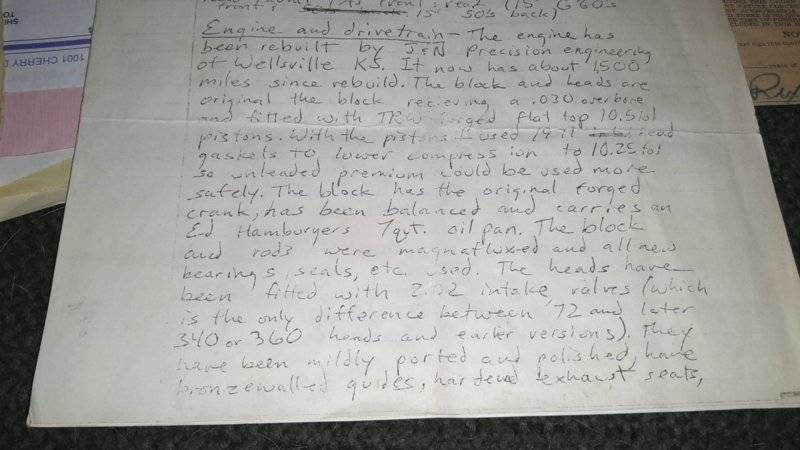 front 15" 50's back)
Engine and drivetrain - The engine has
been rebuilt by J&N Precision engineering
of Wellsville KS. It now has about 1,500
miles since rebuild. The block and heads are
original the block recieving a .030 overbore
and fitted with TRW forged flat top 10.5 to 1
pistons. With the pistons I used 1971 head
gaskets to lower compression to 10.25 to 1
so unleaded premium could be used more
safely. The block has the original forged
crank, has been balanced and carries an
Ed Hamburgers 7 qt. oil pan. The block
and rods were magnafluxed and all new
bearings, seals, etc. used. The heads have
been fitted with 2.02 intake valves (which
is the only difference between '72 and later
340 or 360 heads and earlier versions). They
have been mildly ported and polished, have
bronzewalled guides, hardend exhaust seats,
1001 CHERRY D
SHI
TO